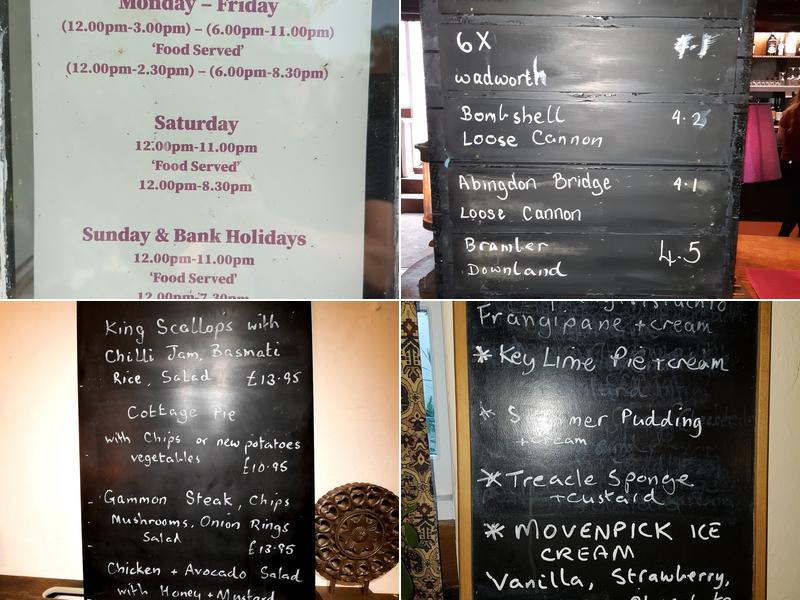 Monday – Friday
(12.00pm-3.00pm) – (6.00pm-11.00pm)
'Food Served'
(12.00pm-2.30pm) – (6.00pm-8.30pm)
Saturday
12.00pm-11.00pm
'Food Served'
12.00pm-8.30pm
Sunday & Bank Holidays
12.00pm-11.00pm
'Food Served'
12.00pm-7.30pm
6X
wadworth
Bombshell 4.2
Loose Cannon
Abingdon Bridge 4.1
Loose Cannon
Brambler 4.5
Downland
King Scallops with
Chilli Jam, Basmati
Rice, Salad £13.95
Cottage Pie
with Chips or new potatoes
vegetables £10.95
Gammon Steak, Chips
Mushrooms, Onion Rings
Salad £13.95
Chicken + Avocado Salad
with Honey + Mustard
Frangipane + cream
* Key Lime Pie + cream
* Summer Pudding
+ cream
* Treacle Sponge
+ custard
* MOVENPICK ICE
CREAM
Vanilla, Strawberry,